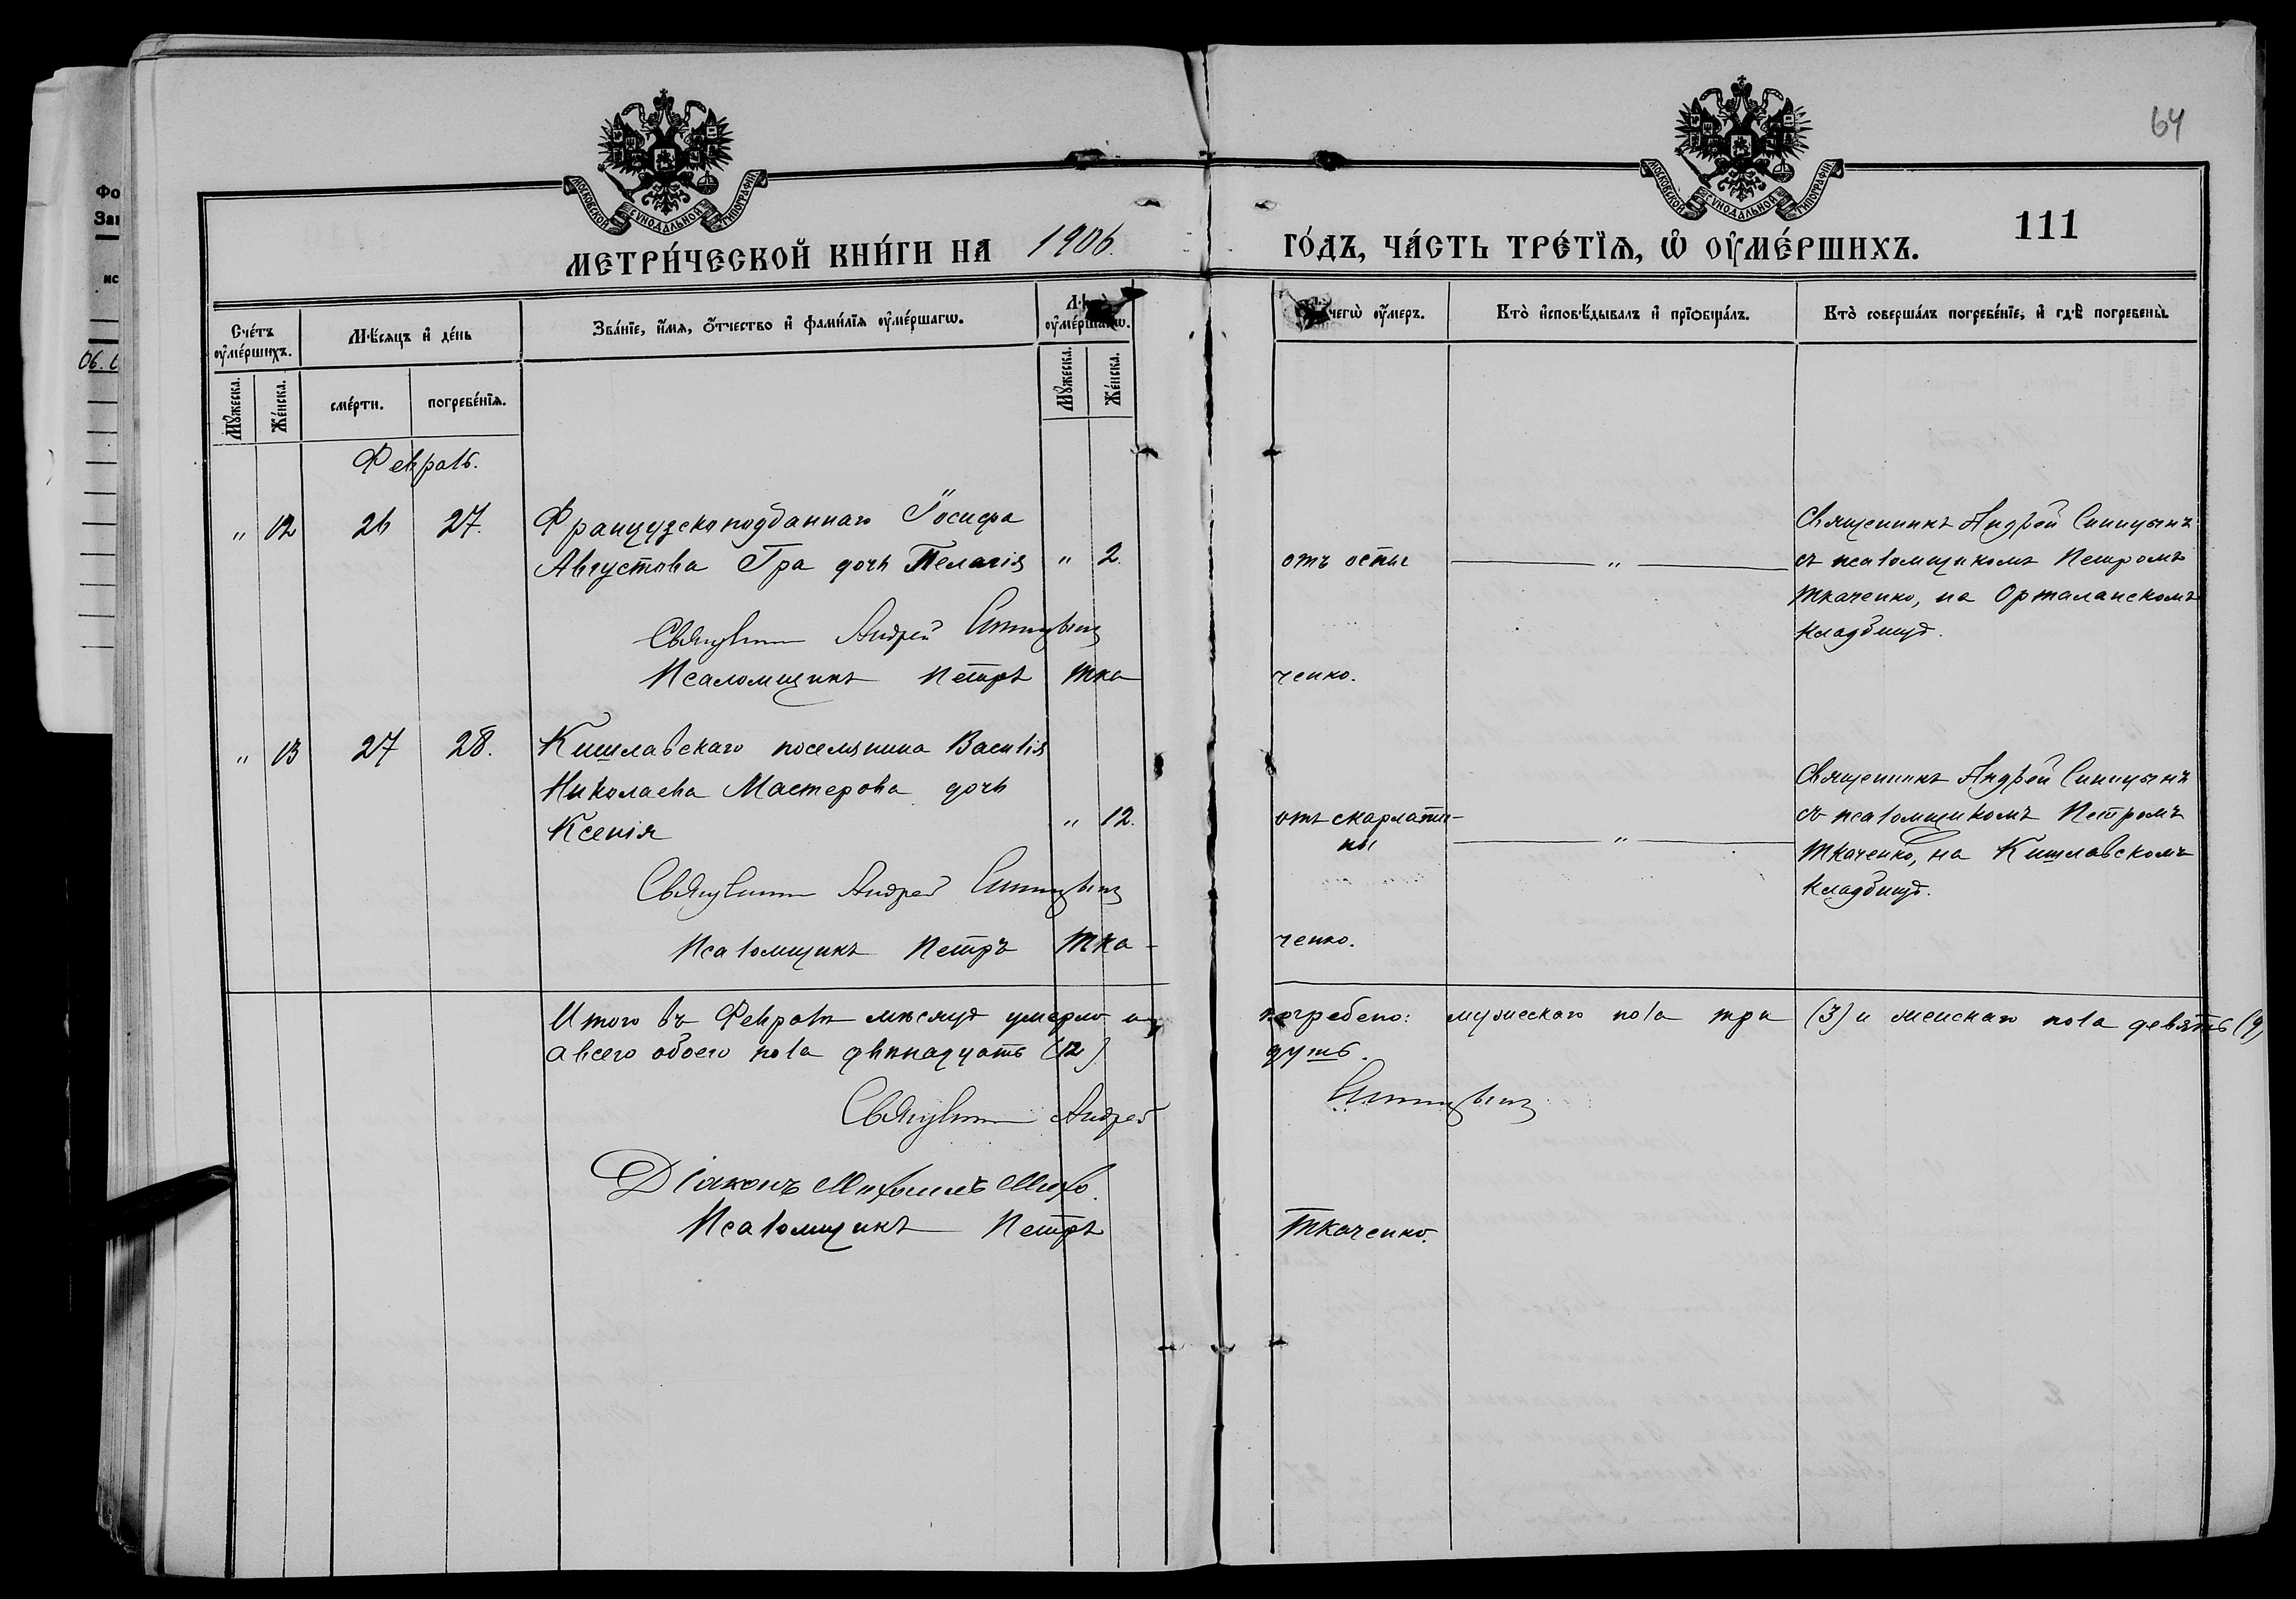 64
МОСКОВСКОЙ СѴНОДАЛЬНОЙ ТИПОГРАФІИ
МОСКОВСКОЙ СѴНОДАЛЬНОЙ ТИПОГРАФІИ
111
МЕТРИ́ЧЕСКОЙ КНИ́ГИ НА 1906. ГО́ДЪ, ЧА́СТЬ ТРЕ́ТЇѦ, Ѡ ОУ҆МЕ́РШИХЪ.
Сче́тъ оу҆ме́ршихъ.
Мѣ́сяцъ и҆ де́нь
Зва́нїе, и҆́мѧ, ѻ҆́тчество и҆ фами́лїѧ оу҆ме́ршагѡ.
оу҆ме́ршагѡ.
чегѡ̀ оу҆́меръ.
Кто̀ и҆сповѣ́дывалъ и҆ прїѻбща́лъ.
Кто̀ соверша́лъ погребе́нїе, и҆ гдѣ̀ погребены̀.
Мꙋ́жеска.
Же́нска.
сме́рти.
погребе́нїѧ.
Мꙋ́жеска.
Же́нска.
Февраль.
" 12 26 27. Французскоподданнаго Іосифа
Августова Гра дочь Пелагія " 2. отъ оспы " Священникъ Андрей Синицынъ
съ псаломщикомъ Петромъ
Ткаченко, на Орталанскомъ
кладбищѣ.
Священникъ Андрей Синицынъ
Псаломщикъ Петръ Тка ченко.
" 13 27 28. Кишлавскаго поселянина Василія
Николаева Мастерова дочь
Ксенія " 12. отъ скарлати-
ны " Священникъ Андрей Синицынъ
съ псаломщикомъ Петромъ
Ткаченко, на Кишлавскомъ
кладбищѣ.
Священникъ Андрей Синицынъ
Псаломщикъ Петръ Тка- ченко.
Итого въ Февралѣ мѣсяцѣ умерло и погребено: мужескаго пола три (3) и женскаго пола девять (9)
а всего обоего пола двѣнадцать (12) душъ.
Священникъ Андрей Синицынъ
Діаконъ Михаилъ
Псаломщикъ Петръ Ткаченко.